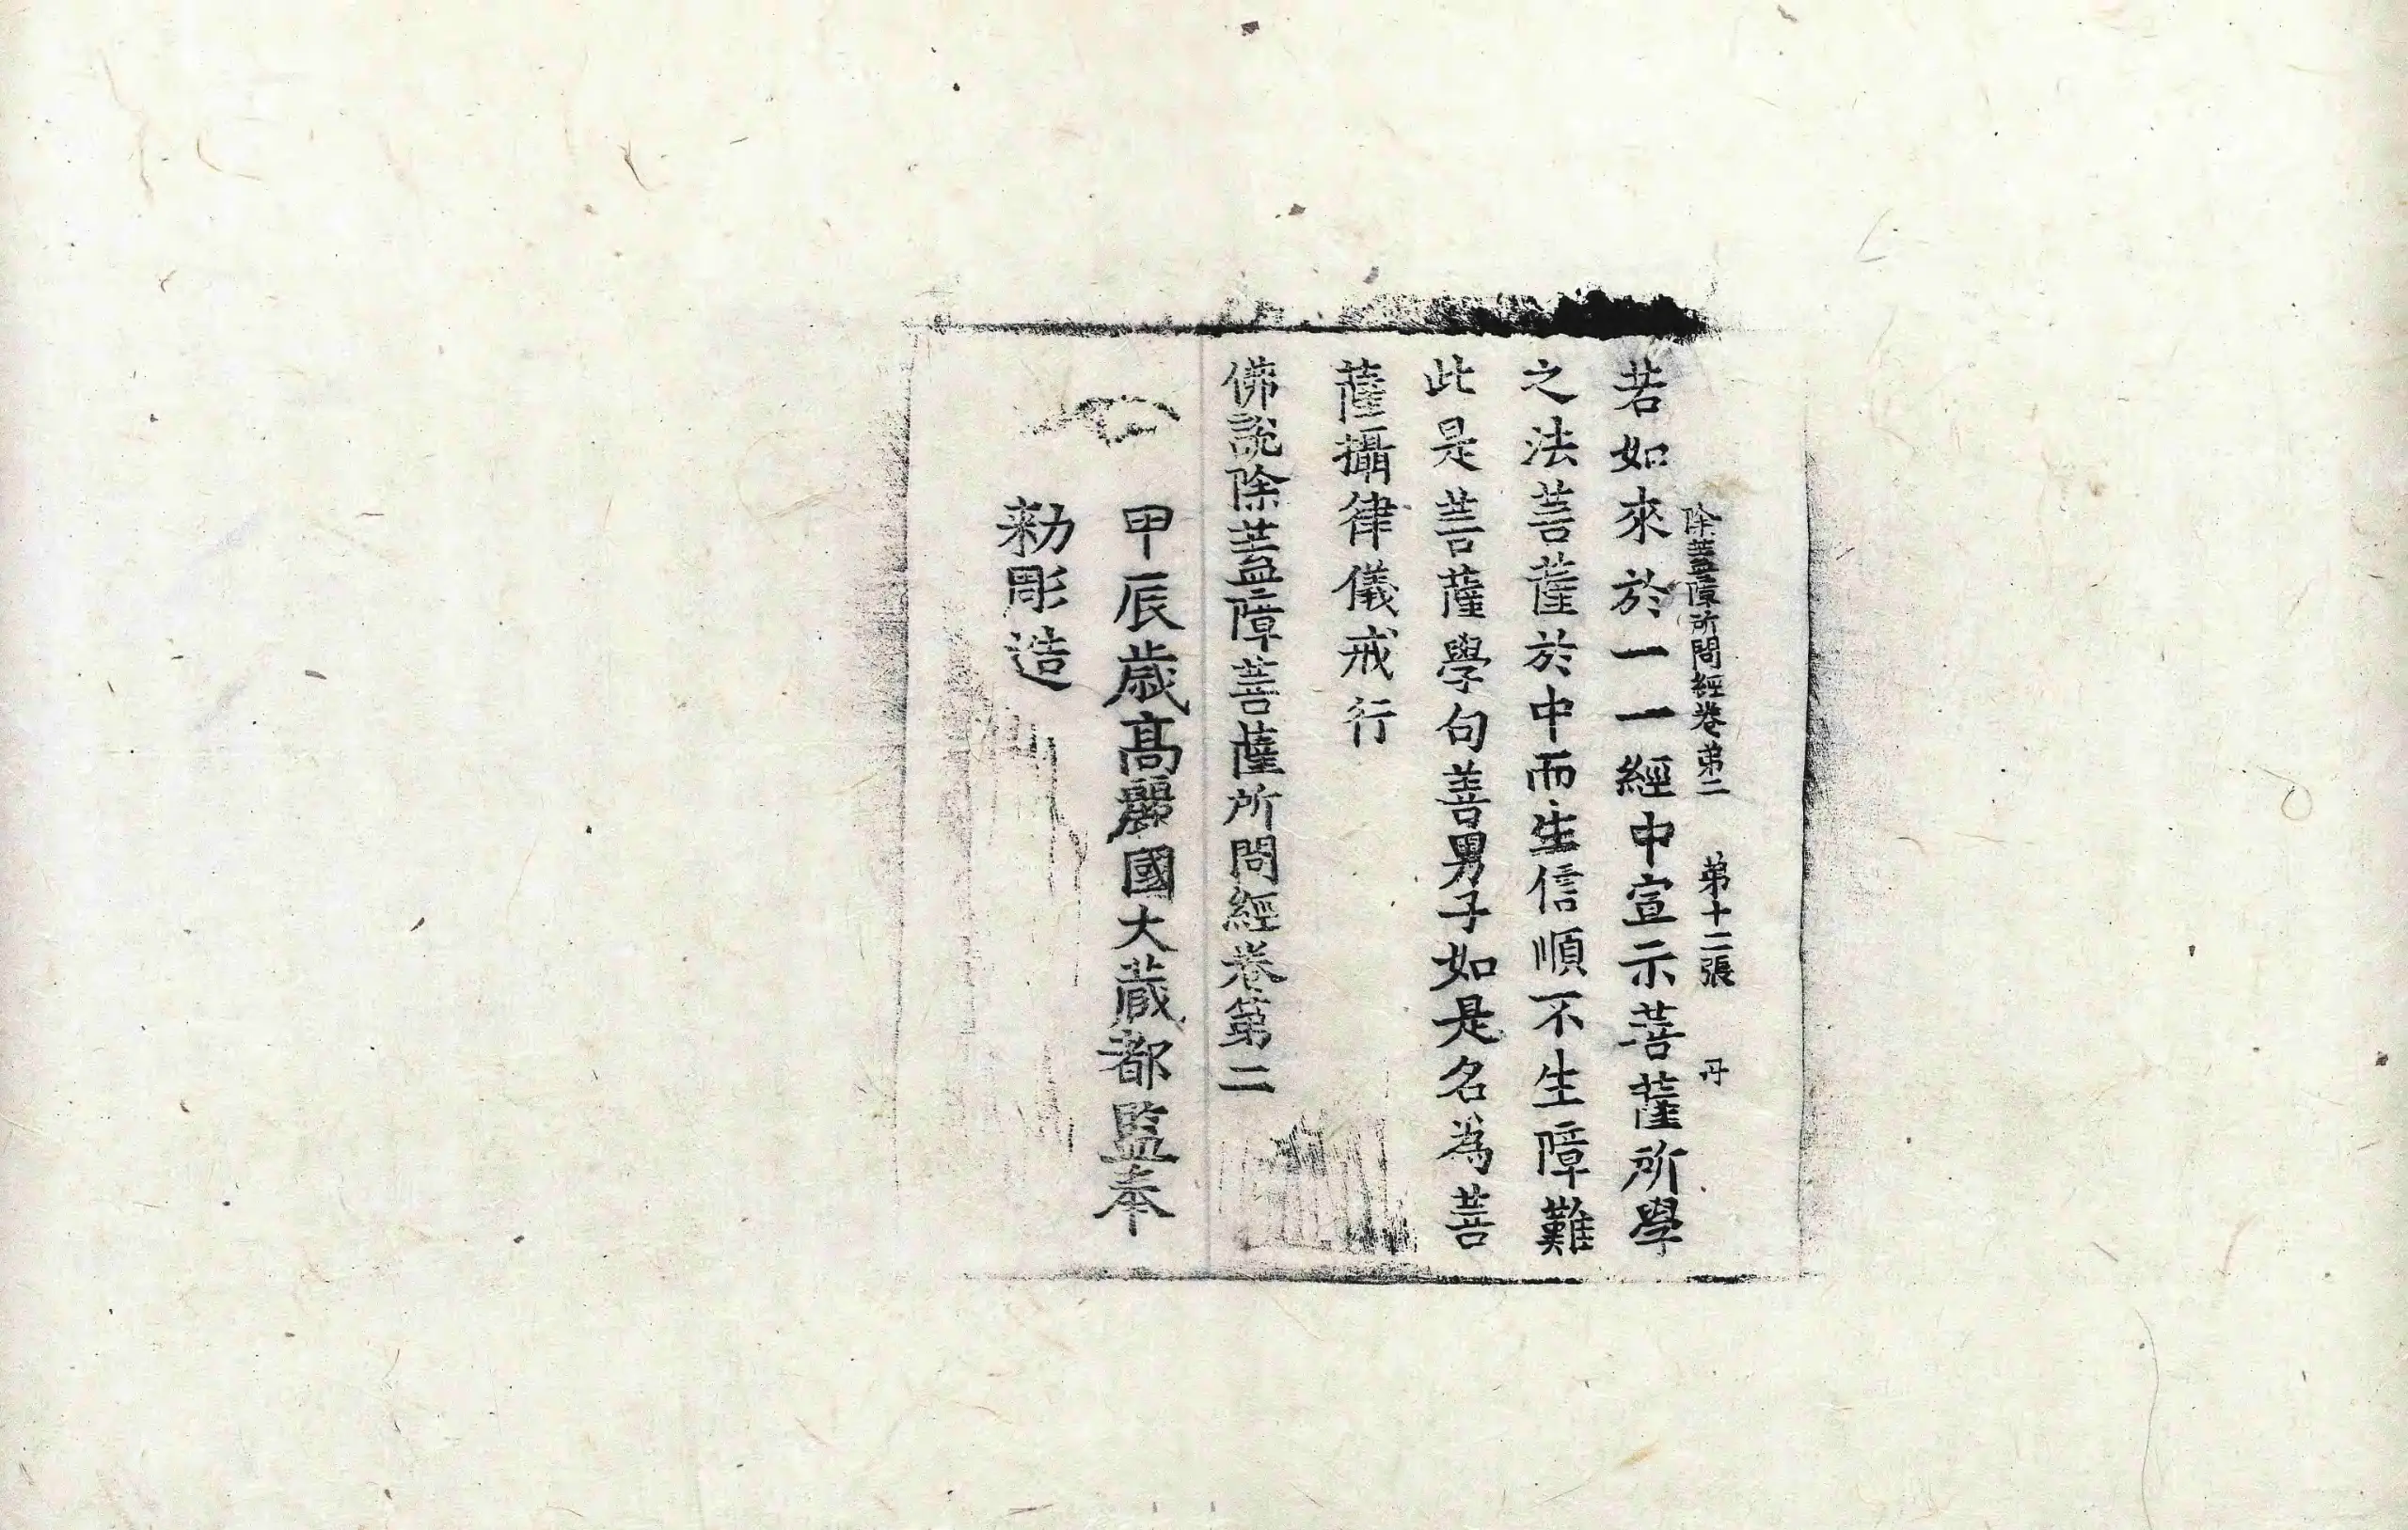 除蓋障所問經卷第二 第十二張 丹
若如來於一一經中宣示菩薩所學
之法菩薩於中而生信順不生障難
此是菩薩學句善男子如是名為菩
薩攝律儀戒行
佛說除蓋障菩薩所問經卷第二
甲辰歲高麗國大藏都監奉
勅彫造